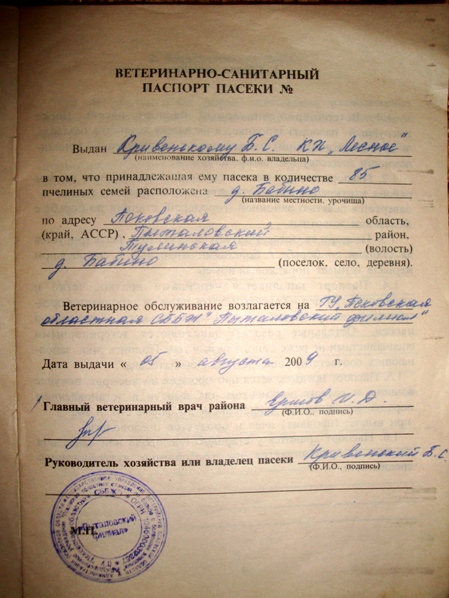 ВЕТЕРИНАРНО-САНИТАРНЫЙ
ПАСПОРТ ПАСЕКИ №
Выдан Кривенькому Б. С. КХ „Лесное"
(наименование хозяйства, ф.и.о. владельца)
в том, что принадлежащая ему пасека в количестве 85
пчелиных семей расположена д. Бабино
(название местности, урочища)
по адресу Псковская область,
(край, АССР), Пыталовский район,
Тулинская (волость)
д. Бабино (поселок, село, деревня).
Ветеринарное обслуживание возлагается на ГУ Псковская
областная СББЖ "Пыталовский филиал"
Дата выдачи « 05 » августа 2009 г.
Главный ветеринарный врач района Ершов И. Д.
(Ф.И.О., подпись)
Руководитель хозяйства или владелец пасеки Кривенький Б. С.
(Ф.И.О., подпись)
М.П.
«Пыталовский
филиал»